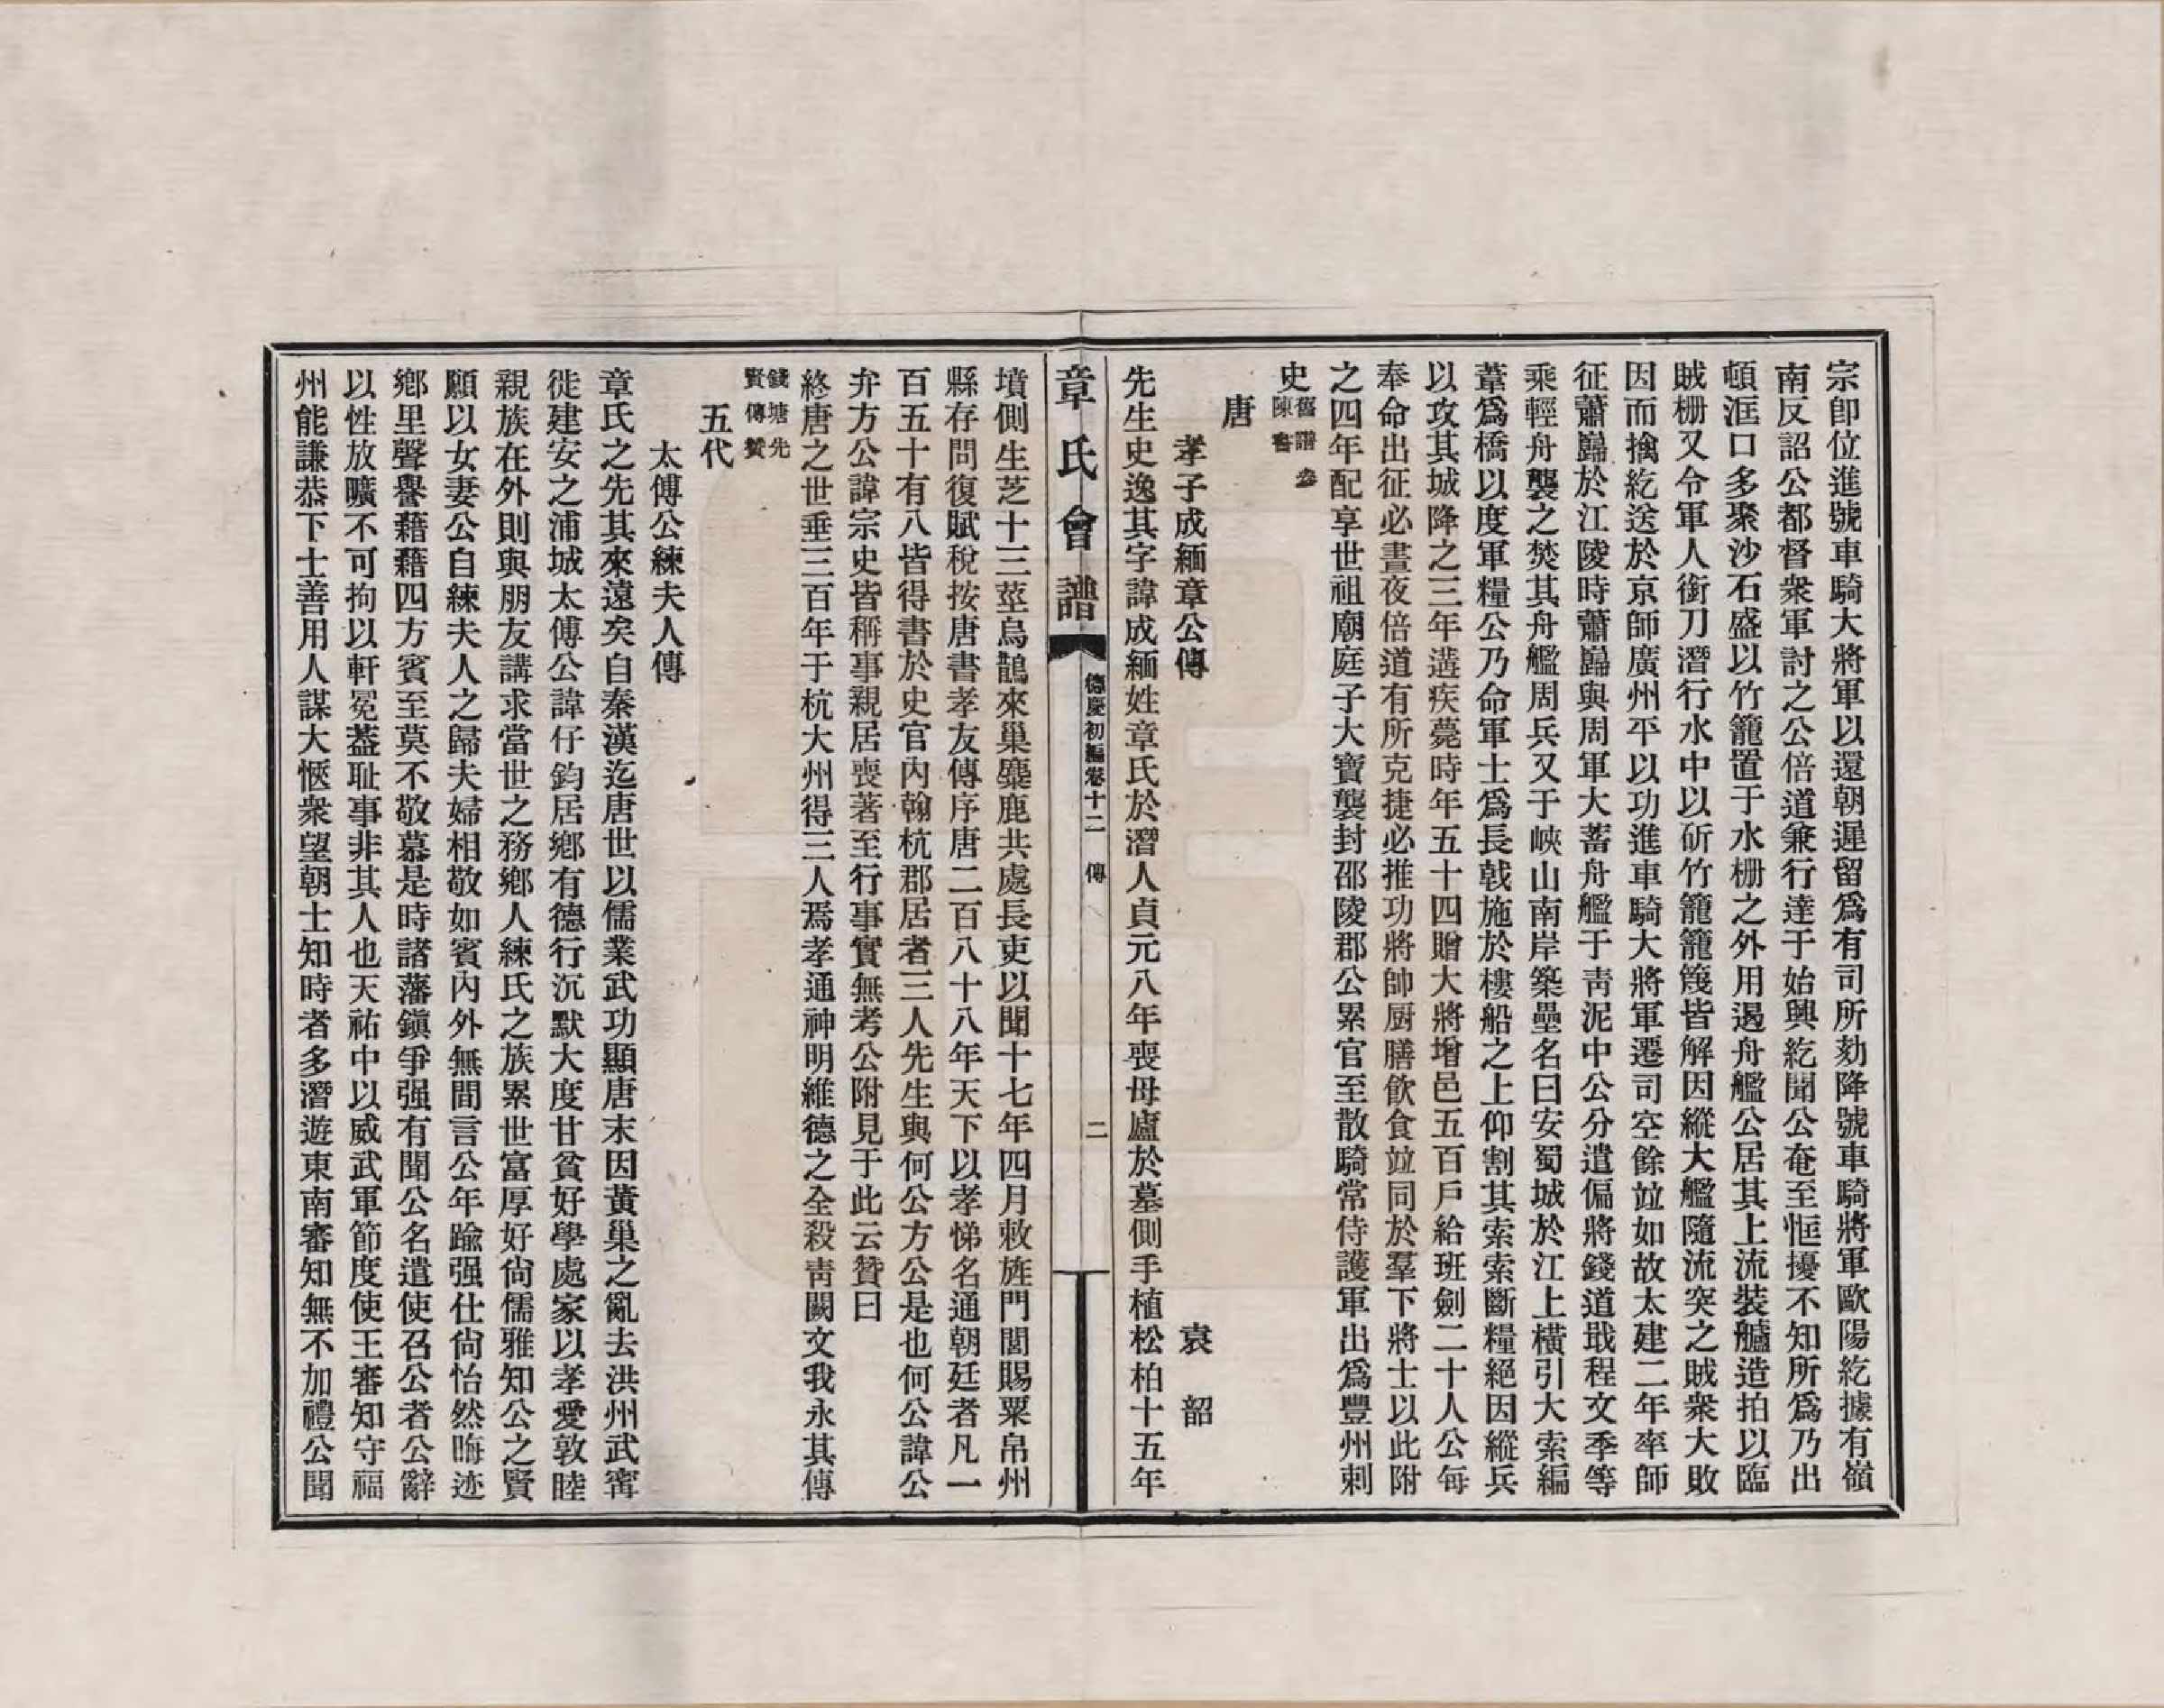 宗卽位進號車騎大將軍以還朝遲留爲有司所劾降號車騎將軍歐陽紇據有嶺
南反詔公都督衆軍討之公倍道兼行達于始興紇聞公奄至恇擾不知所爲乃出
頓洭口多聚沙石盛以竹籠置于水柵之外用遏舟艦公居其上流裝艫造拍以臨
賊柵又令軍人銜刀潛行水中以斫竹籠籠篾皆解因縱大艦隨流突之賊衆大敗
因而擒紇送於京師廣州平以功進車騎大將軍遷司空餘竝如故太建二年率師
征蕭巋於江陵時蕭巋與周軍大蓄舟艦于靑泥中公分遣偏將錢道戢程文季等
乘輕舟襲之焚其舟艦周兵又于峽山南岸築壘名曰安蜀城於江上橫引大索編
葦爲橋以度軍糧公乃命軍士爲長戟施於樓船之上仰割其索索斷糧絕因縱兵
以攻其城降之三年遘疾薨時年五十四贈大將增邑五百戶給班劍二十人公每
奉命出征必晝夜倍道有所克捷必推功將帥厨膳飲食竝同於羣下將士以此附
之四年配享世祖廟庭子大寶襲封邵陵郡公累官至散騎常侍護軍出爲豐州刺
史舊譜參陳書
唐
孝子成緬章公傳 袁韶
先生史逸其字諱成緬姓章氏於潛人貞元八年喪母廬於墓側手植松柏十五年
章氏會譜 德慶初編卷十二 傳 二
墳側生芝十三莖烏鵲來巢麋鹿共處長吏以聞十七年四月敕旌門閭賜粟帛州
縣存問復賦稅按唐書孝友傳序唐二百八十八年天下以孝悌名通朝廷者凡一
百五十有八皆得書於史官內翰杭郡居者三人先生與何公方公是也何公諱公
弁方公諱宗史皆稱事親居喪著至行事實無考公附見于此云贊曰
終唐之世垂三百年于杭大州得三人焉孝通神明維德之全殺靑闕文我永其傳
錢塘先賢傳贊
五代
太傅公練夫人傳
章氏之先其來遠矣自秦漢迄唐世以儒業武功顯唐末因黃巢之亂去洪州武寗
徙建安之浦城太傅公諱仔鈞居鄉有德行沉默大度甘貧好學處家以孝愛敦睦
親族在外則與朋友講求當世之務鄉人練氏之族累世富厚好尙儒雅知公之賢
願以女妻公自練夫人之歸夫婦相敬如賓內外無間言公年踰强仕尙怡然晦迹
鄉里聲譽藉藉四方賓至莫不敬慕是時諸藩鎭爭强有聞公名遣使召公者公辭
以性放曠不可拘以軒冕葢耻事非其人也天祐中以威武軍節度使王審知守福
州能謙恭下士善用人謀大愜衆望朝士知時者多潛遊東南審知無不加禮公聞